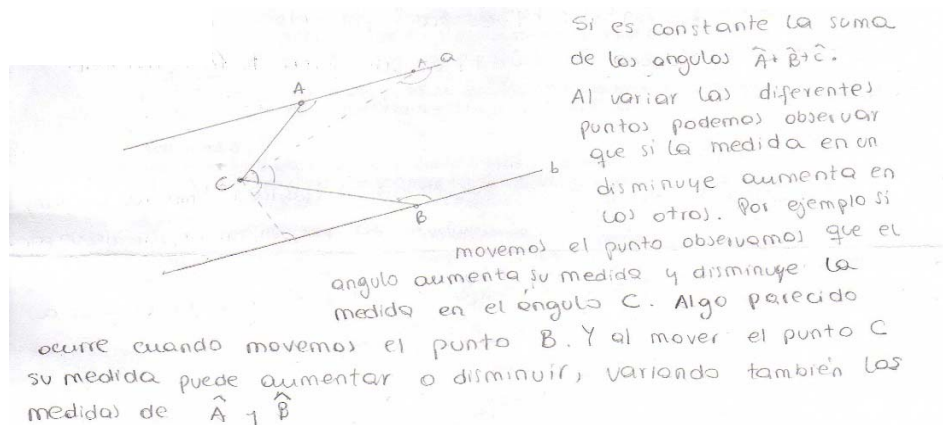 Si es constante la suma
de los angulos Â+B̂+Ĉ.
Al variar las diferentes
puntos podemos observar
que si la medida en un
disminuye aumenta en
los otros. Por ejemplo si
movemos el punto observamos que el
angulo aumenta su medida y disminuye la
medida en el ángulo C. Algo parecido
ocurre cuando movemos el punto B. Y al mover el punto C
su medida puede aumentar o disminuir, variando también las
medidas de Â y B̂
A
A
a
C
b
B